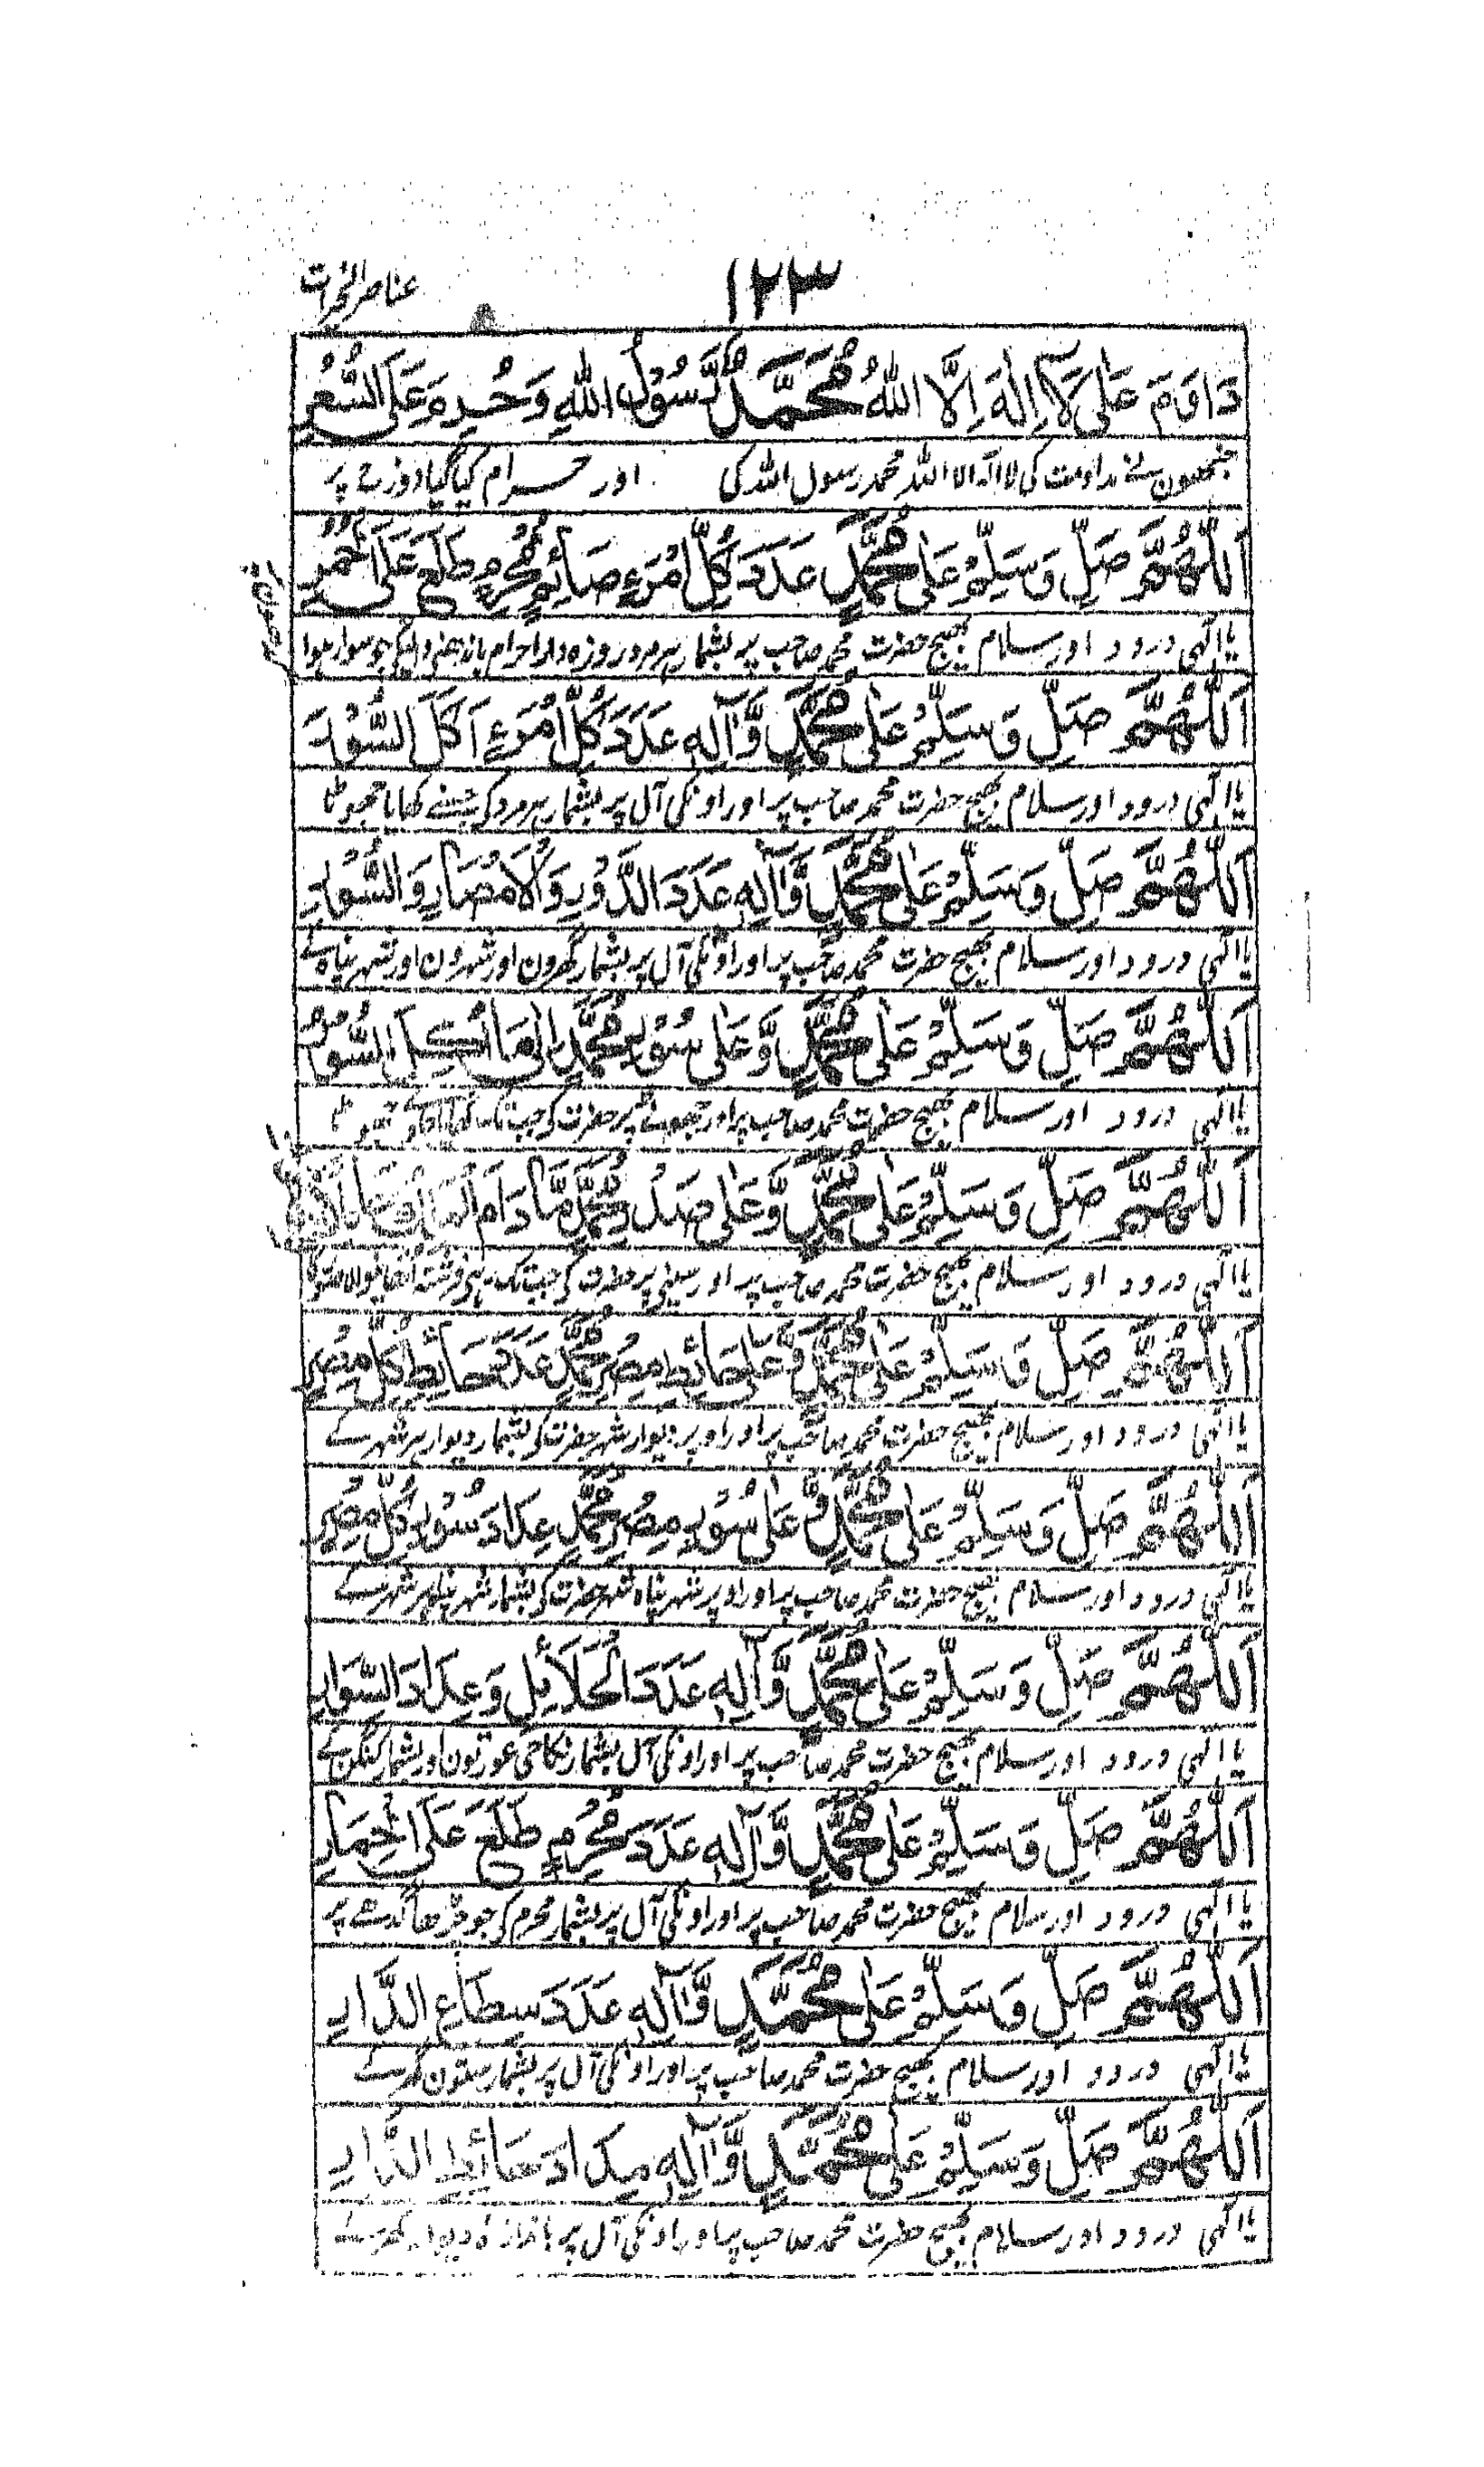 ۱۲۳
عناصر الخیرات
دَاوَمَ عَلٰی لَآ اِلٰهَ اِلَّا اللّٰهُ مُحَمَّدٌ رَّسُوْلُ اللّٰهِ وَحُرِمَ عَلَی السُّعُرِ
جنھون نے مداومت کی لا الٰہ الا اللہ محمد رسول اللہ کی اور حرام کیا گیا دوزخ پر
اَللّٰهُمَّ صَلِّ وَسَلِّمْ عَلٰی مُحَمَّدٍ عَدَدَ كُلِّ امْرَءٍ صَائِمٍ مُحْرِمٍ طَلَعَ عَلَی الْحُمُرِ
یا الٰہی درود اور سلام بھیج حضرت محمد صاحب پر بشمار ہر مرد روزہ دار احرام باندھنے والیکی جو سوار ہوا
اَللّٰهُمَّ صَلِّ وَسَلِّمْ عَلٰی مُحَمَّدٍ وَّاٰلِهٖ عَدَدَ كُلِّ امْرَءٍ اَكَلَ السُّوْرَ
یا الٰہی درود اور سلام بھیج حضرت محمد صاحب پر اور اونکی آل پر بشمار ہر مرد کی جسنے کھایا جھوٹا
اَللّٰهُمَّ صَلِّ وَسَلِّمْ عَلٰی مُحَمَّدٍ وَّاٰلِهٖ عَدَدَ الدُّوْرِ وَالْاَمْصَارِ وَالسُّوْرِ
یا الٰہی درود اور سلام بھیج حضرت محمد صاحب پر اور اونکی آل پر بشمار گھرون اور شہرون اور شہر پناہ کے
اَللّٰهُمَّ صَلِّ وَسَلِّمْ عَلٰی مُحَمَّدٍ وَّعَلٰی سُوْرِ مُحَمَّدٍ السُّوْرُ
یا الٰہی درود اور سلام بھیج حضرت محمد صاحب پر اور جھوٹے پر حضرت کی جب تک
اَللّٰهُمَّ صَلِّ وَسَلِّمْ عَلٰی مُحَمَّدٍ وَّعَلٰی صَدْرِ مُحَمَّدٍ مَّا دَامَ
یا الٰہی درود اور سلام بھیج حضرت محمد صاحب پر اور سینی پر حضرت کی جب تک ہی فرشتہ
اَللّٰهُمَّ صَلِّ وَسَلِّمْ عَلٰی مُحَمَّدٍ وَّعَلٰی حَائِطِ مِصْرِ مُحَمَّدٍ عَدَدَ حَائِطِ كُلِّ مِصْرٍ
یا الٰہی درود اور سلام بھیج حضرت محمد صاحب پر اور اوپر دیوار شہر حضرت کی بشمار دیوار ہر شہر کے
اَللّٰهُمَّ صَلِّ وَسَلِّمْ عَلٰی مُحَمَّدٍ وَّعَلٰی سُوْرِ مِصْرِ مُحَمَّدٍ عِدَادَ سُوْرِ كُلِّ مِصْرٍ
یا الٰہی درود اور سلام بھیج حضرت محمد صاحب پر اور اوپر شہر پناہ شہر حضرت کی بشمار شہر پناہ ہر شہر کے
اَللّٰهُمَّ صَلِّ وَسَلِّمْ عَلٰی مُحَمَّدٍ وَّاٰلِهٖ عَدَدَ الْحَلَائِلِ وَعِدَادَ السِّوَارِ
یا الٰہی درود اور سلام بھیج حضرت محمد صاحب پر اور اونکی آل بشمار نکاحی عورتون اور بشمار کنگن کے
اَللّٰهُمَّ صَلِّ وَسَلِّمْ عَلٰی مُحَمَّدٍ وَّاٰلِهٖ عَدَدَ مُحْرِمٍ طَلَعَ عَلَی الْحِمَارِ
یا الٰہی درود اور سلام بھیج حضرت محمد صاحب پر اور اونکی آل پر بشمار محرم کی جو چڑھا گدھے پر
اَللّٰهُمَّ صَلِّ وَسَلِّمْ عَلٰی مُحَمَّدٍ وَّاٰلِهٖ عَدَدَ سِطَاعِ الدَّارِ
یا الٰہی درود اور سلام بھیج حضرت محمد صاحب پر اور اونکی آل پر بشمار ستون گھر کے
اَللّٰهُمَّ صَلِّ وَسَلِّمْ عَلٰی مُحَمَّدٍ وَّاٰلِهٖ حَائِطِ الدَّارِ
یا الٰہی درود اور سلام بھیج حضرت محمد صاحب پر اور اونکی آل پر باندازہ دیوار گھر کے